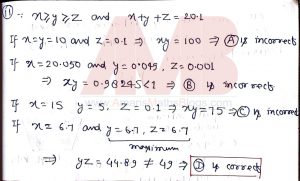 (11) ∵ x ≥ y ≥ z and x+y+z = 20.1
If x=y=10 and z = 0.1 ⇒ xy = 100 ⇒ (A) is incorrect
If x = 20.050 and y = 0.049, z = 0.001
⇒ xy = 0.98245 < 1 ⇒ (B) is incorrect
If x = 15 y = 5, z = 0.1 ⇒ xy = 75 ⇒ (C) is incorrect
If x = 6.7 and y = 6.7, z = 6.7
maximum
⇒ yz = 44.89 ≠ 49 ⇒ (D) is correct